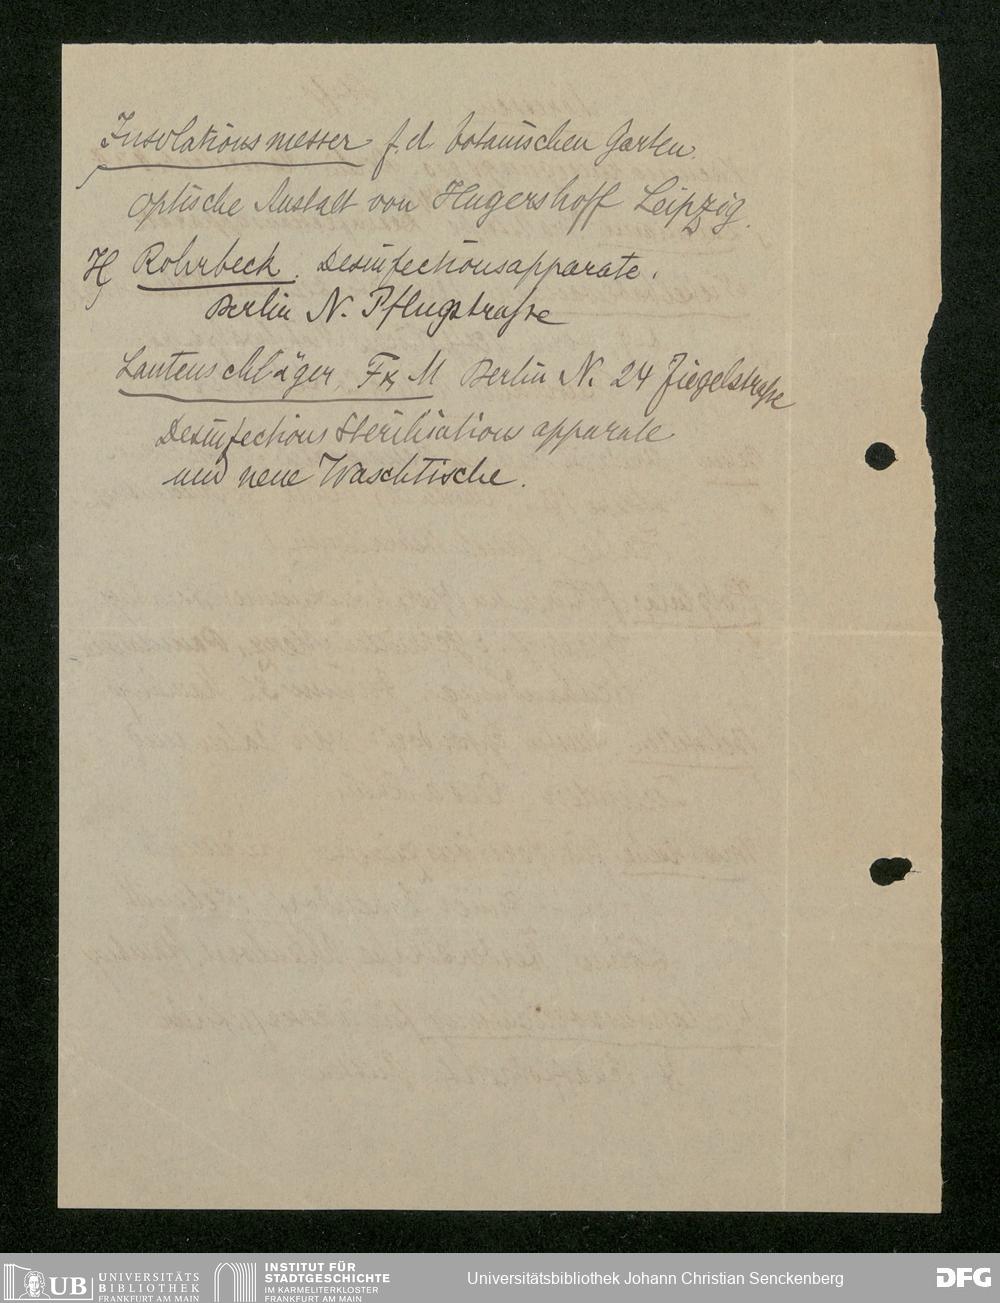 Insolationsmesser f. d. botanischen Garten.
optische Anstalt von Hugershoff Leipzig.
H Rohrbeck. Desinfectionsapparate.
Berlin N. Pflugstraße
Lautenschläger, Fr M Berlin N. 24 Ziegelstraße
Desinfections Sterilisations apparate
und neue Waschtische.
UB UNIVERSITÄTS
BIBLIOTHEK
FRANKFURT AM MAIN
INSTITUT FÜR
STADTGESCHICHTE
IM KARMELITERKLOSTER
FRANKFURT AM MAIN
Universitätsbibliothek Johann Christian Senckenberg
DFG